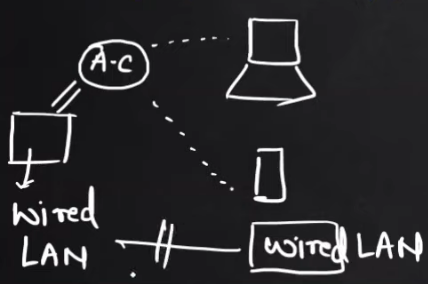 A-C
Wired
LAN
Wired LAN